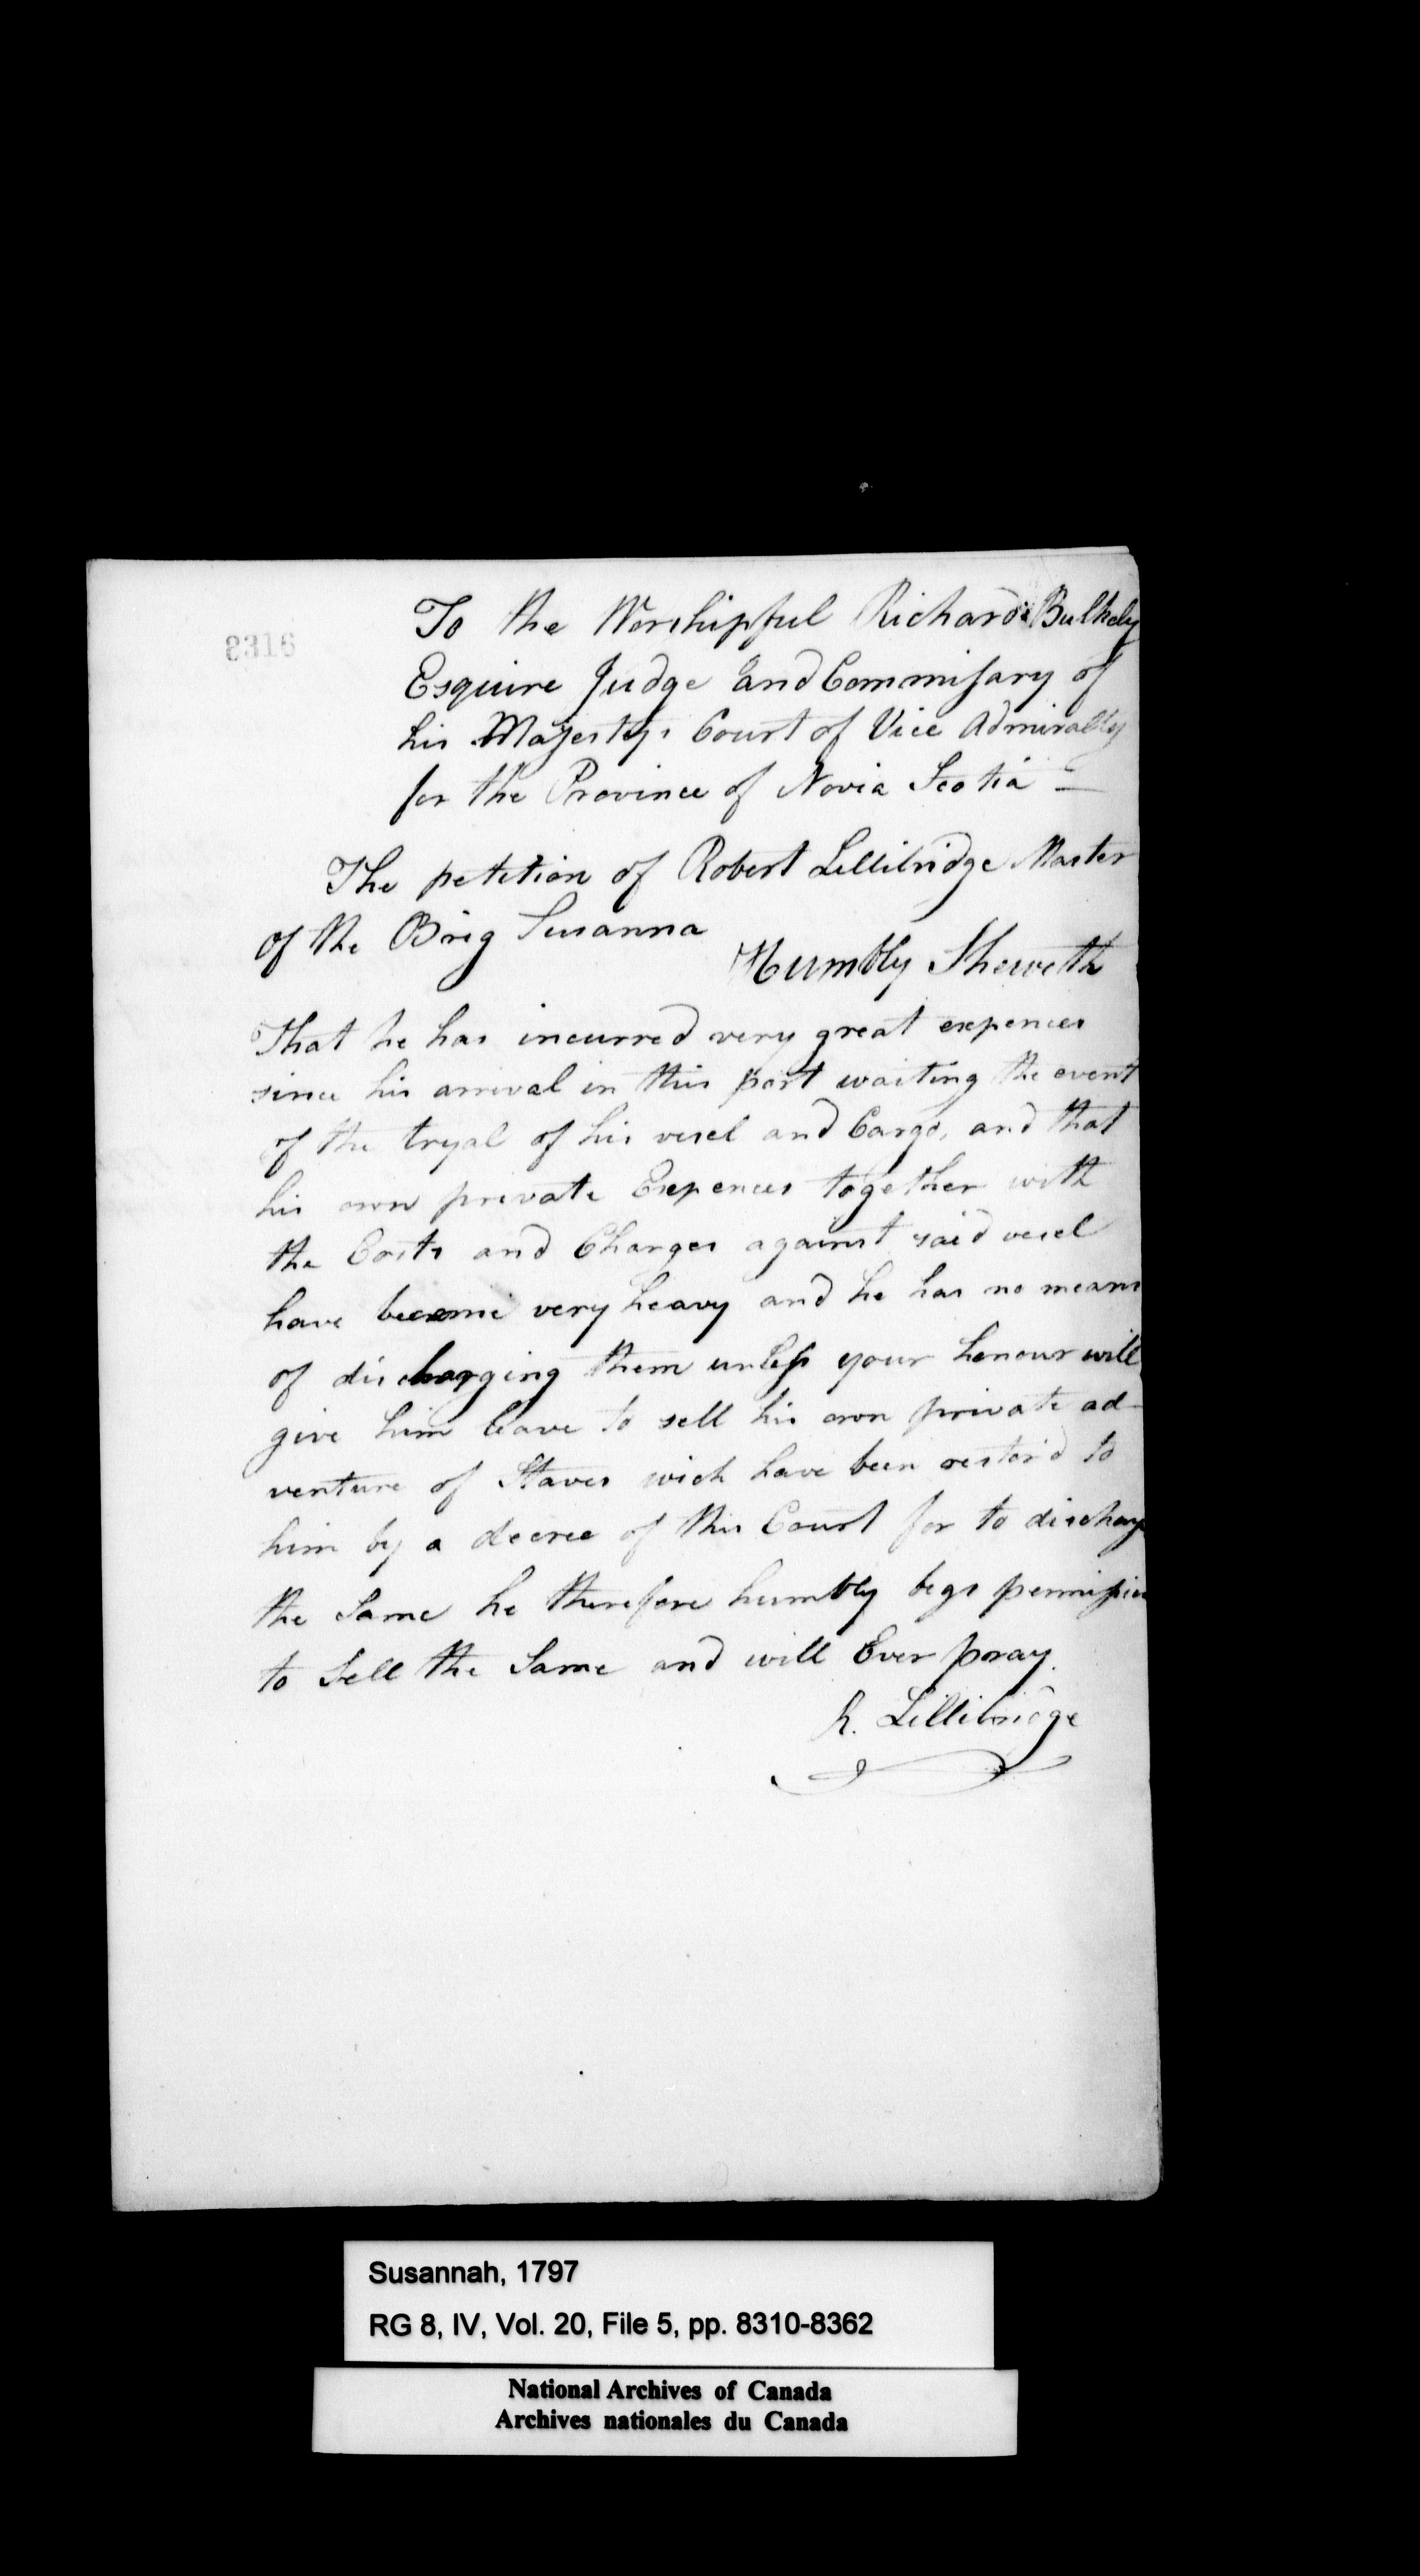 8316
To the Worshipful Richard Bulkely
Esquire Judge and Commisary of
his Majestys Court of Vice Admiralty
for the Province of Novia Scotia
The petition of Robert Lillibridge Master
of the Brig Susanna
Humbly Sheweth
That he has incurred very great expences
since his arrival in this port waiting the event
of the tryal of his vesel and Cargo, and that
his own private Expences together with
the Costs and Charges against said vesel
have become very heavy and he has no means
of discharging them unless your honour will
give him leave to sell his own private ad-
venture of Staves wich have been restor'd to
him by a decree of this Court for to discharge
the Same he therefore humbly begs permission
to Sell the Same and will Ever pray.
R. Lillibridge
Susannah, 1797
RG 8, IV, Vol. 20, File 5, pp. 8310-8362
National Archives of Canada
Archives nationales du Canada